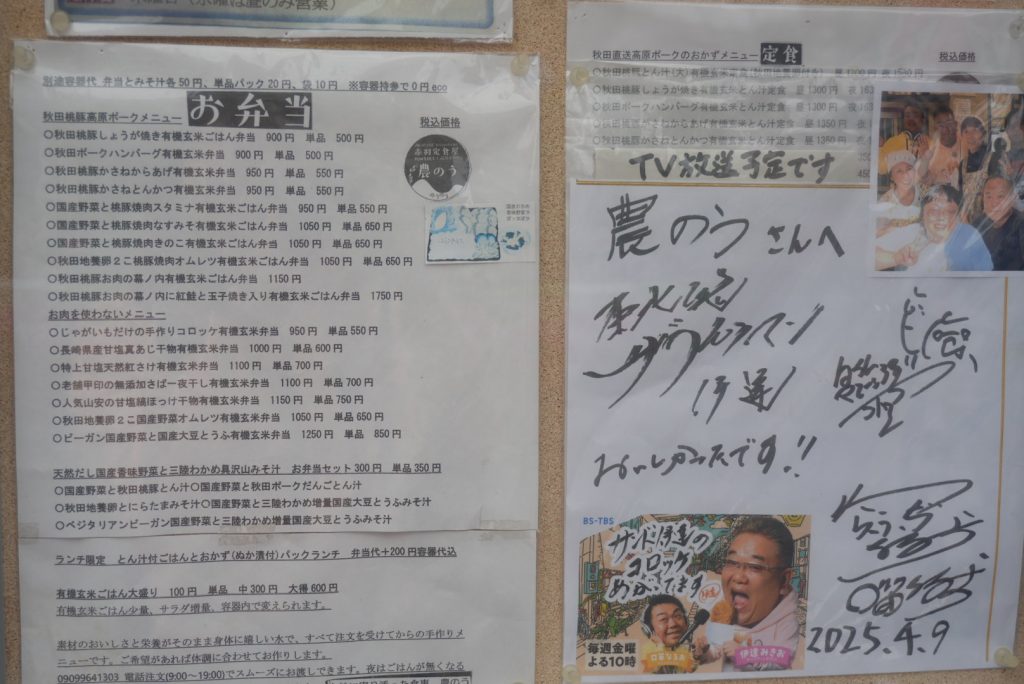 木曜日（水曜は昼のみ営業）
別途容器代 弁当とみそ汁各50円、単品パック20円、袋10円 ※容器持参で0円eco
お弁当
秋田桃豚高原ポークメニュー
税込価格
○秋田桃豚しょうが焼き有機玄米ごはん弁当 900円 単品 500円
○秋田ポークハンバーグ有機玄米弁当 900円 単品 500円
○秋田桃豚かさねからあげ有機玄米弁当 950円 単品 550円
○秋田桃豚かさねとんかつ有機玄米弁当 950円 単品 550円
○国産野菜と桃豚焼肉スタミナ有機玄米ごはん弁当 950円 単品550円
○国産野菜と桃豚焼肉なすみそ有機玄米ごはん弁当 1050円 単品650円
○国産野菜と桃豚焼肉きのこ有機玄米ごはん弁当 1050円 単品650円
○秋田地養卵2こ桃豚焼肉オムレツ有機玄米ごはん弁当 1050円 単品650円
○秋田桃豚お肉の幕ノ内有機玄米ごはん弁当 1150円
○秋田桃豚お肉の幕ノ内に紅鮭と玉子焼き入り有機玄米ごはん弁当 1750円
赤羽定食屋
農のう
お肉を使わないメニュー
○じゃがいもだけの手作りコロッケ有機玄米弁当 950円 単品550円
○長崎県産甘塩真あじ干物有機玄米弁当 1000円 単品600円
○特上甘塩天然紅さけ有機玄米弁当 1100円 単品700円
○老舗甲印の無添加さば一夜干し有機玄米弁当 1100円 単品700円
○人気山安の甘塩縞ほっけ干物有機玄米弁当 1150円 単品750円
○秋田地養卵2こ国産野菜オムレツ有機玄米弁当 1050円 単品650円
○ビーガン国産野菜と国産大豆とうふ有機玄米弁当 1250円 単品 850円
天然だし国産香味野菜と三陸わかめ具沢山みそ汁 お弁当セット300円 単品350円
○国産野菜と秋田桃豚とん汁○国産野菜と秋田ポークだんごとん汁
○秋田地養卵とにらたまみそ汁○国産野菜と三陸わかめ増量国産大豆とうふみそ汁
○ベジタリアンビーガン国産野菜と三陸わかめ増量国産大豆とうふみそ汁
ランチ限定 とん汁付ごはんとおかず（ぬか漬付）パックランチ 弁当代＋200円容器代込
有機玄米ごはん大盛り 100円 単品 中300円 大得600円
有機玄米ごはん少量、サラダ増量、容器内で変えられます。
素材のおいしさと栄養がそのまま身体に嬉しい水で、すべて注文を受けてからの手作りメ
ニューです。ご希望があれば体調に合わせてお作りします。
09099641303 電話注文(9:00～19:00)でスムーズにお渡しできます。夜はごはんが無くなる
秋田直送高原ポークのおかずメニュー 定食
税込価格
○秋田桃豚とん汁(大)有機玄米定食
○秋田桃豚しょうが焼き有機玄米とん汁定食 昼1300円 夜163
○秋田ポークハンバーグ有機玄米とん汁定食 昼1300円 夜163
○秋田桃豚かさねからあげ有機玄米とん汁定食 昼1350円 夜1
○秋田桃豚かさねとんかつ有機玄米とん汁定食 昼1350円 夜1
TV放送予定です
農のう さんへ
おいしかったです!!
2025.4.9
BS-TBS
サンド伊達の
コロッケ
あがってます
毎週金曜
よる10時
伊達みきお